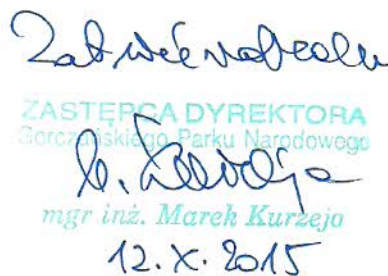 ZASTĘPCA DYREKTORA
Gorczańskiego Parku Narodowego
mgr inż. Marek Kurzeja
12.X.2015